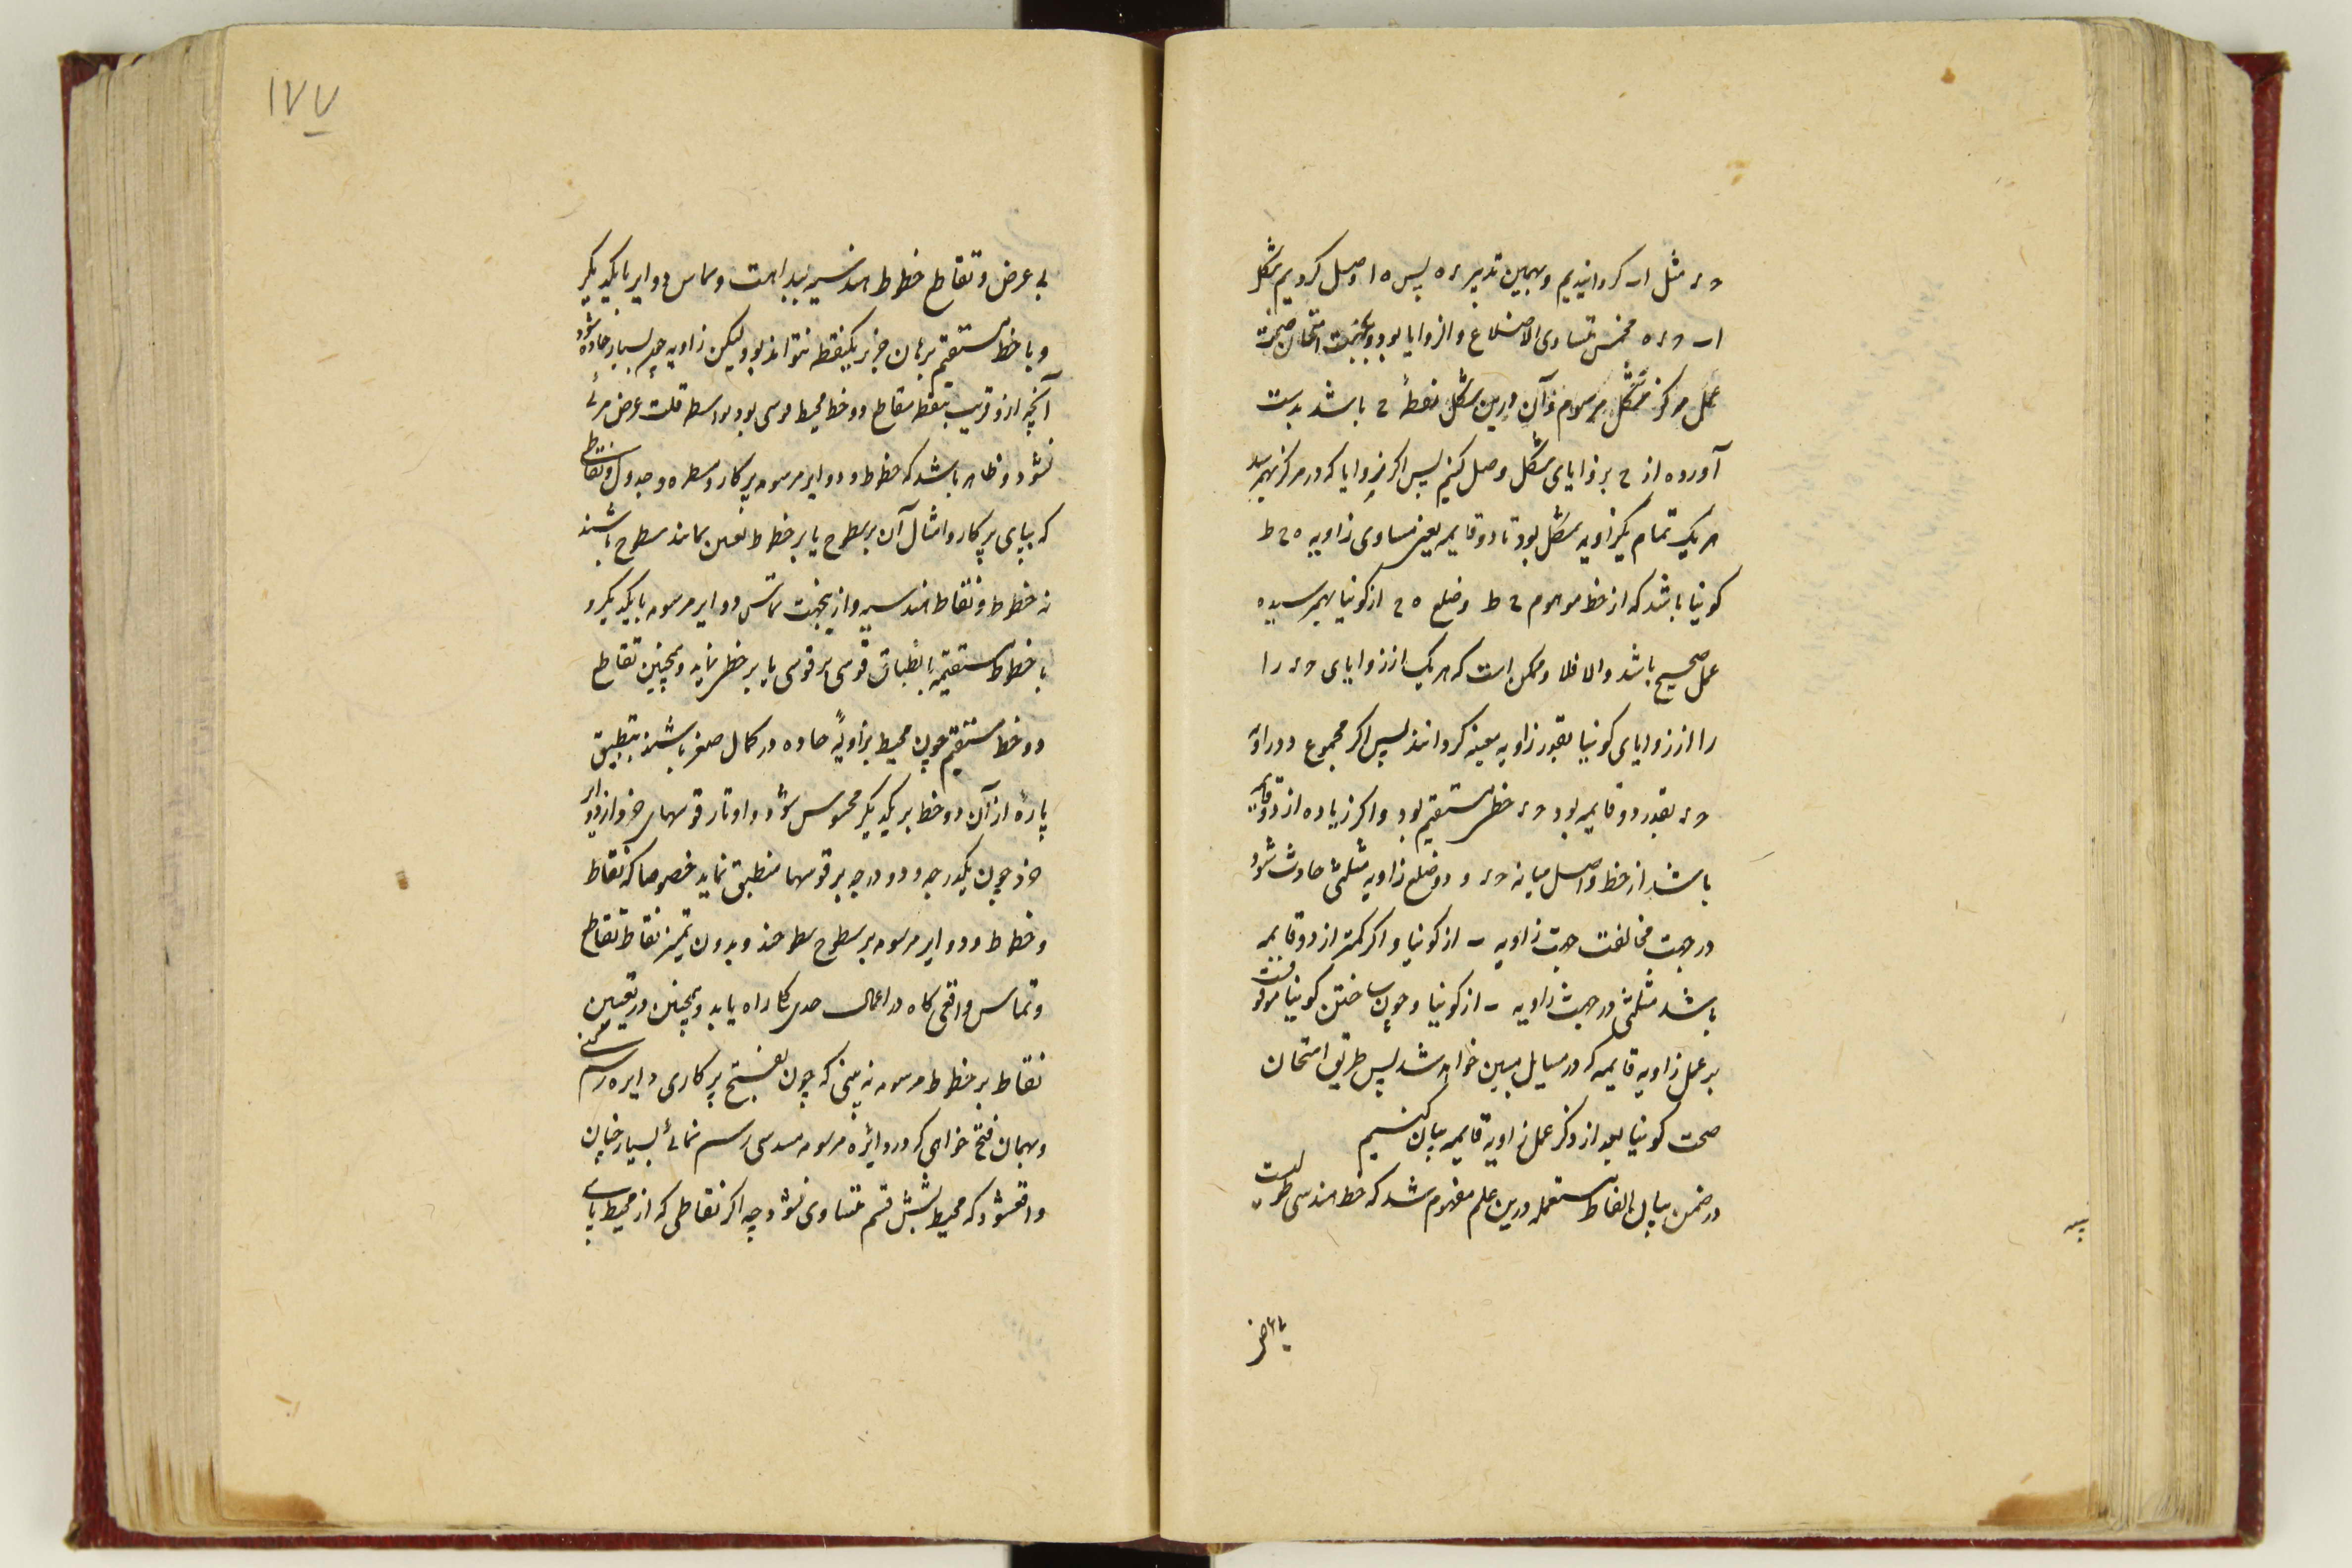 ح ء مثل اب کردانیدیم و بهمین تدبیر ء ه پس ه ا وصل کردیم شکل
اب ح ء ه مخمس متساوی الاضلاع و الزوایا بود و بجهت امتحان صحت
عمل مرکز شکل مرسوم و آن درین شکل نقطهٔ ح باشد بدست
آورده از ح بر زوایای شکل وصل کنیم پس اکر زوایا که در مرکز بهم رسد
هر یک تمام یکزاویه شکل بود تا دو قایمه یعنی مساوی زاویه ه ح ط
کونیا باشد که از خط موهوم ح ط و ضلع ه ح از کونیا بهم رسیده
عمل صحیح باشد والا فلا و ممکن است که هر یک از زوایای ح ء را
را از زوایای کونیا بقدر زاویه معینه کردانند پس اکر مجموع دو زاویه
ح ء بقدر دو قایمه بود ح ء خط مستقیم بود و اکر زیاده از دو قایمه
باشد از خط واصل میانه ح ء و دو ضلع زاویه مثلثی حادث شود
در جهت مخالفت جهت زاویه ب از کونیا و اکر کمتر از دو قایمه
باشد مثلثی در جهت زاویه ب از کونیا و چون ساختن کونیا موقوفست
بر عمل زاویه قایمه که در مسایل مبین خواهد شد پس طریق امتحان
صحت کونیا بعد از ذکر عمل زاویه قایمه بیان کنیم
در ضمن بیان الفاظ مستعمله درین علم مفهوم شد که خط هندسی طولیست
بی عرض
۱۷۷
بی عرض و تقاطع خطوط هندسیه ببداهت و تماس دوایر با یکدیکر
و با خط مستقیم ببرهان جز بر یکنقطه نتواند بود لیکن زاویه چون بسیار حاده شود
آنچه از و قریب بنقطه تقاطع دو خط محیط موسی بود بواسطه قلت عرض مرئی
نشود و ظاهر باشد که خطوط و دوایر مرسومه بپرکار و مسطره و جدول و نقاطی
که بپای پرکار و امثال آن بر سطوح یا بر خطوط تعیین نمایند سطوح باشند
نه خطوط و نقاط هندسیه و ازینجهت تماس دوایر مرسومه با یکدیکر و
با خطوط مستقیمه بانطباق قوسی بر قوسی یا بر خطی نماید و همچنین تقاطع
دو خط مستقیم چون محیط بزاویهٔ حاده در کمال صغر باشند بتطبیق
پارهٔ از آن دو خط بر یکدیکر محسوس شود و اوتار قوسهای خرد از دوایر
خرد چون یکدرجه و دو درجه بر قوسها منطبق نماید خصوصا که نقاط
و خطوط و دوایر مرسومه بر سطوح سطوحند و بدون تمیز نقاط تقاطع
و تماس واقعی کاه در اعمال حدی کار راه یابد و همچنین در تعیین
نقاط بر خطوط مرسومه نه بینی که چون بفتح پرکاری دایره رسم کنی
و بهمان فتح خواهی که در دایرهٔ مرسومه مسدسی رسم نمائی بسیار چنان
واقع شود که محیط بشش قسم متساوی نشود چه اکر نقاطی که از محیط بپای